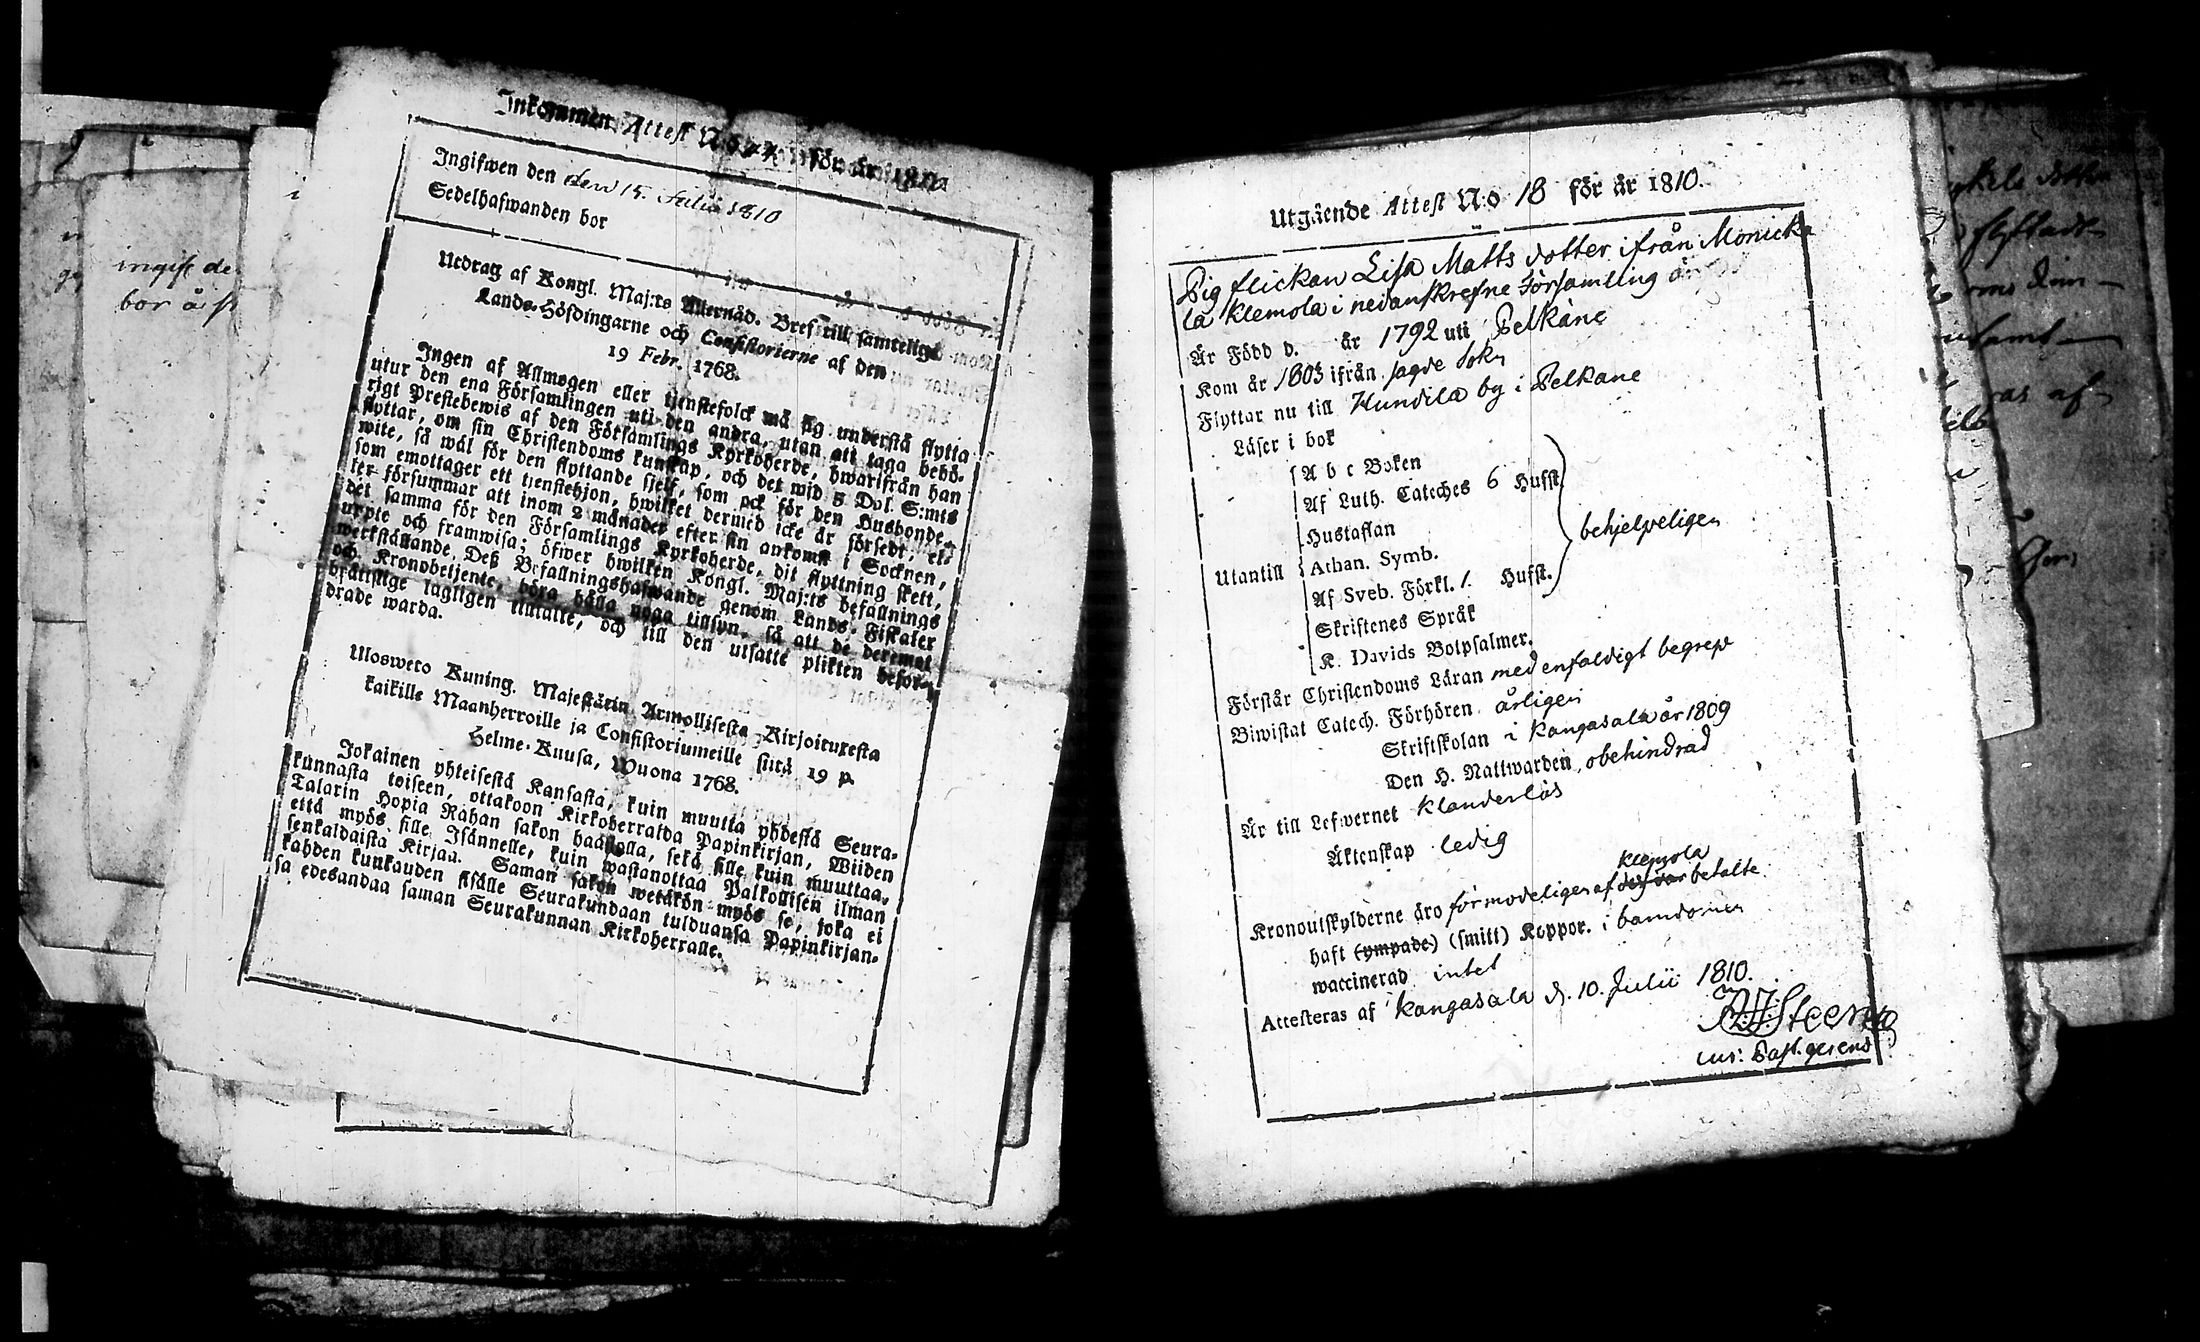 Inkommen Attest N:o för år 1810
Ingifwen den den 15. Julii 1810
Sedelhafwanden bor
Utdrag af Kongl. Maj:ts Allernåd. Bref till samtelige
Lands-Höfdingarne och Consistorierne af den
19 Febr. 1768.
Ingen af Allmogen eller tjenstefolck må sig understå flytta
utur den ena Församlingen uti den andra, utan att taga behö-
rigt Prestebewis af den Församlings Kyrkoherde, hwarifrån han
flyttar, om sin Christendoms kunskap, och det wid 5 Dal. S:mts
wite, så wäl för den flyttande sjelf, som ock för den Husbonde,
som emottager ett tjenstehjon, hwilket dermed icke är försedt, el-
ler försummar att inom 2 månader efter sin ankomst i Socknen,
det samma för den Församlings Kyrkoherde, dit flyttning skett,
uppte och framwisa; öfwer hwilken Kongl. Maj:ts befallnings
werkställande, Deß Befallningshafwande genom Lands-Fiskaler
och Kronobetjente, böra hålla noga tillsyn, så att de deremot
bråttslige lagligen tilltalte, och till den utsatte plikten befor-
drade warda.
Ulosweto Kuning. Majestätin Armollisesta Kirjoituxesta
kaikille Maanherroille ja Consistoriumeille siitä 19 p.
Helme-Kuusa, Wuona 1768.
Jokainen yhteisestä Kansasta, kuin muutta yhdestä Seura-
kunnasta toiseen, ottakoon Kirkoherralda Papinkirjan, Wiiden
Talarin Hopia Rahan sakon haastolla, sekä sille kuin muuttaa,
että myös sille Isännelle, kuin wastanottaa Palkollisen ilman
senkaldaista Kirjaa. Saman sakon wetäkön myös se, joka ei
kahden kuukauden sisälle Seurakundaan tulduansa Papinkirjan-
sa edesandaa saman Seurakunnan Kirkoherralle.
ingift de
bor å
Utgående Attest N:o 18 för år 1810.
Pigflickan Lisa Matts dotter ifrån Monicka
la Klemola i nedanskrefne Församling är
Är Född d. år 1792 uti Pelkäne
Kom år 1803 ifrån sagde Sokn
Flyttar nu till Hundila by i Pelkäne
Läser i bok
A b c Boken
Af Luth. Cateches 6 Hufst.
Hustaflan
behjelpeligen
Utantill Athan. Symb.
Af Sveb. Förkl. 1. Hufst.
Skriftenes Språk
K. Davids Botpsalmer.
Förstår Christendoms Läran med enfaldigt begrep
Biwistat Catech. Förhören årligen
Skriftskolan i Kangasala år 1809
Den H. Nattwarden, obehindrad
Är till Lefwernet klanderlös
Äktenskap ledig
Klemola
Kronoutskylderne äro förmodeligen af betalte
haft (ympade) (smitt) Koppor. i barndomen
waccinerad intet
Attesteras af Kangasala d. 10. Julii 1810.
Steen
Past. gerens